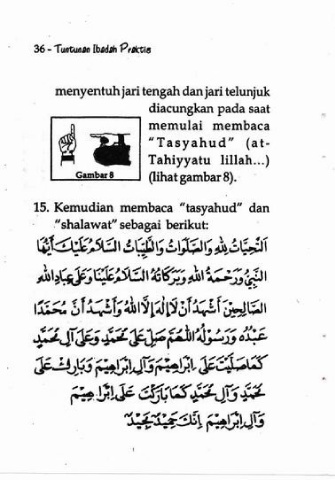 36 - Tuntunan Ibadah Praktis
menyentuh jari tengah dan jari telunjuk
diacungkan pada saat
memulai membaca
"Tasyahud" (at-
Tahiyyatu lillah...)
(lihat gambar 8).
Gambar 8
15. Kemudian membaca "tasyahud" dan
"shalawat" sebagai berikut:
اَلتَّحِيَّاتُ لِلّٰهِ وَالصَّلَوَاتُ وَالطَّيِّبَاتُ السَّلَامُ عَلَيْكَ أَيُّهَا
النَّبِيُّ وَرَحْمَةُ اللهِ وَبَرَكَاتُهُ السَّلَامُ عَلَيْنَا وَعَلَى عِبَادِ اللهِ
الصَّالِحِيْنَ أَشْهَدُ أَنْ لَا إِلٰهَ إِلَّا اللهُ وَأَشْهَدُ أَنَّ مُحَمَّدًا
عَبْدُهُ وَرَسُوْلُهُ اَللّٰهُمَّ صَلِّ عَلَى مُحَمَّدٍ وَعَلَى آلِ مُحَمَّدٍ
كَمَا صَلَّيْتَ عَلَى إِبْرَاهِيْمَ وَآلِ إِبْرَاهِيْمَ وَبَارِكْ عَلَى
مُحَمَّدٍ وَآلِ مُحَمَّدٍ كَمَا بَارَكْتَ عَلَى إِبْرَاهِيْمَ
وَآلِ إِبْرَاهِيْمَ إِنَّكَ حَمِيْدٌ مَجِيْدٌ